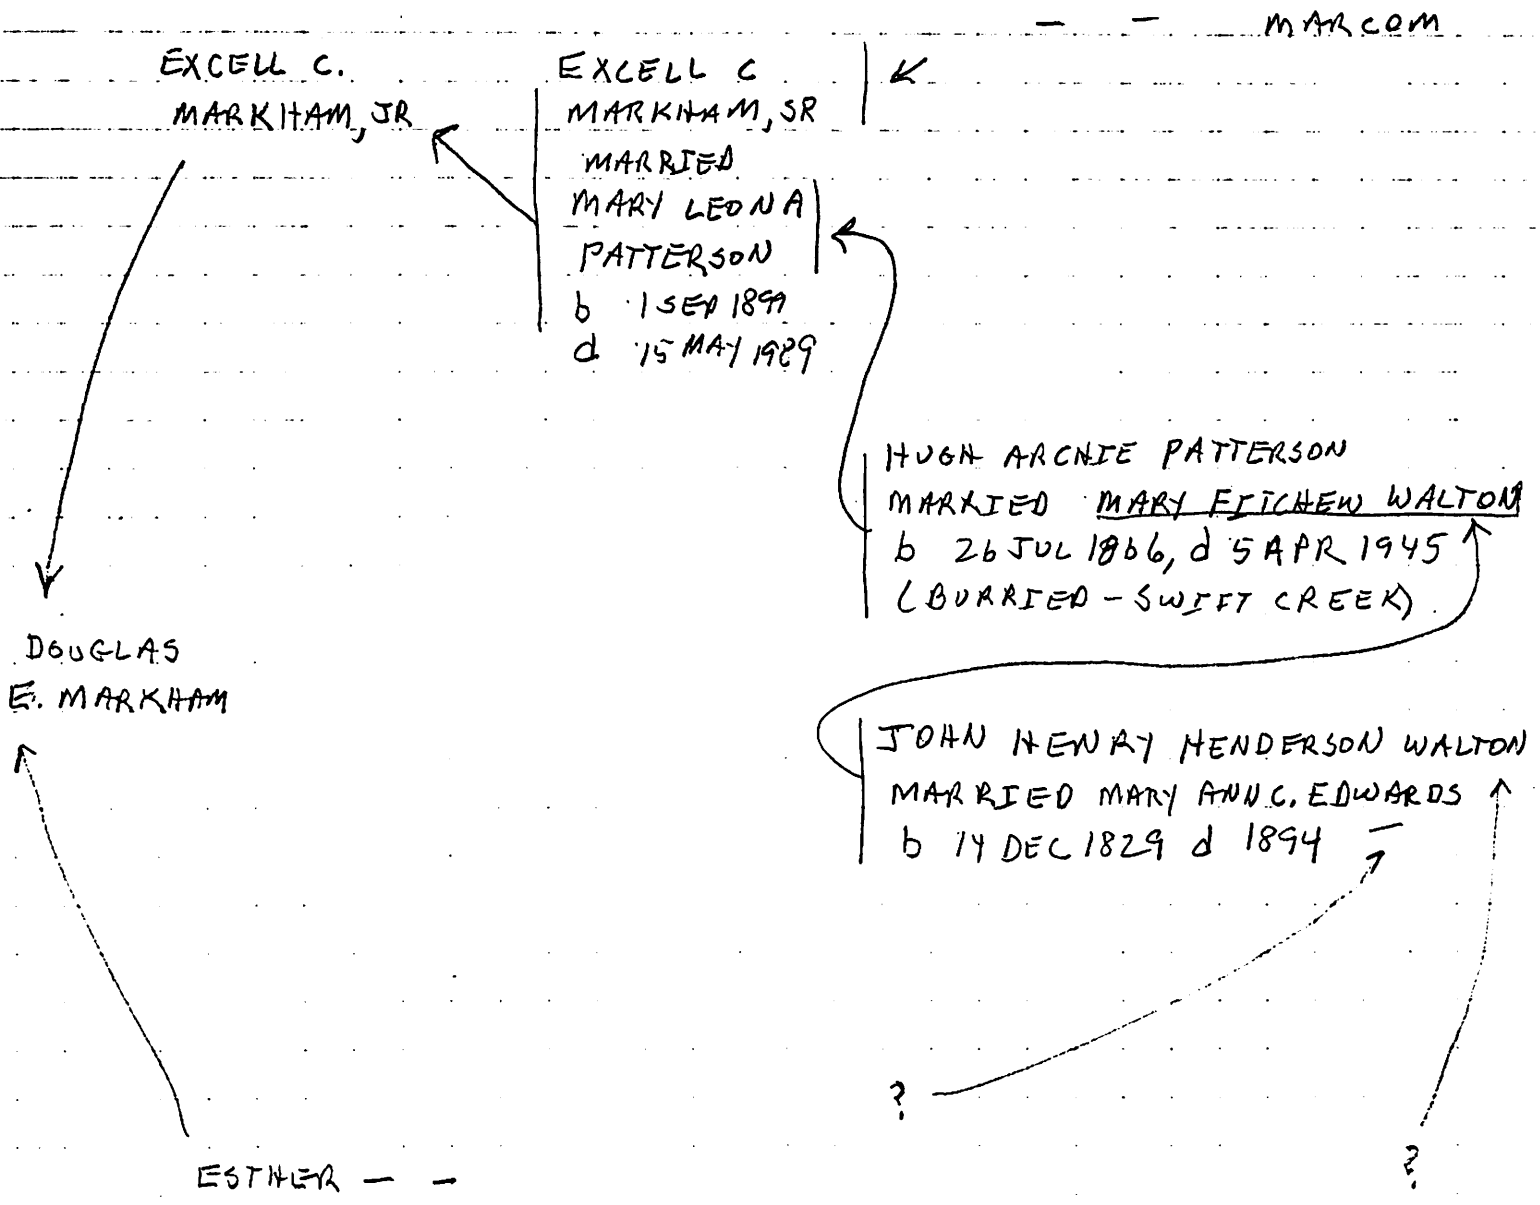 — — MARCOM
EXCELL C.
MARKHAM, JR
EXCELL C
MARKHAM, SR
MARRIED
MARY LEONA
PATTERSON
b 1 SEP 1899
d 15 MAY 1989
HUGH ARCHIE PATTERSON
MARRIED MARY FITCHEW WALTON
b 26 JUL 1866, d 5 APR 1945
(BURRIED - SWIFT CREEK)
DOUGLAS
E. MARKHAM
JOHN HENRY HENDERSON WALTON
MARRIED MARY ANN C. EDWARDS
b 14 DEC 1829 d 1894 —
?
?
ESTHER — —